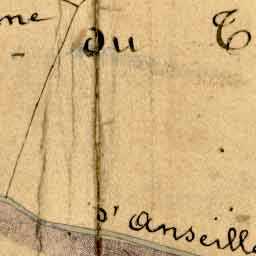 ne du
d'Anseill